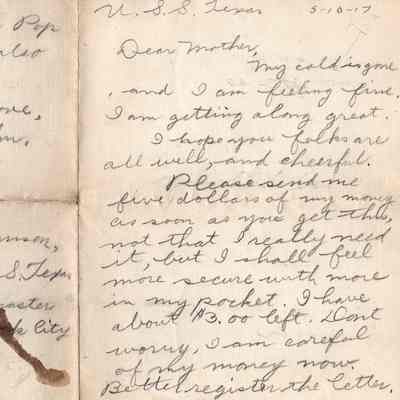 Pop
also
U.S.S. Texas 5-10-17
Dear Mother,
My cold is gone
, and I am feeling fine.
I am getting along great.
I hope you folks are
all well, and cheerful.
Please send me
five dollars of my money
as soon as you get this,
not that I really need
it, but I shall feel
more secure with more
in my pocket. I have
about $3.00 left. Dont
worry, I am careful
of my money now.
Better register the letter.
S. Texas
City